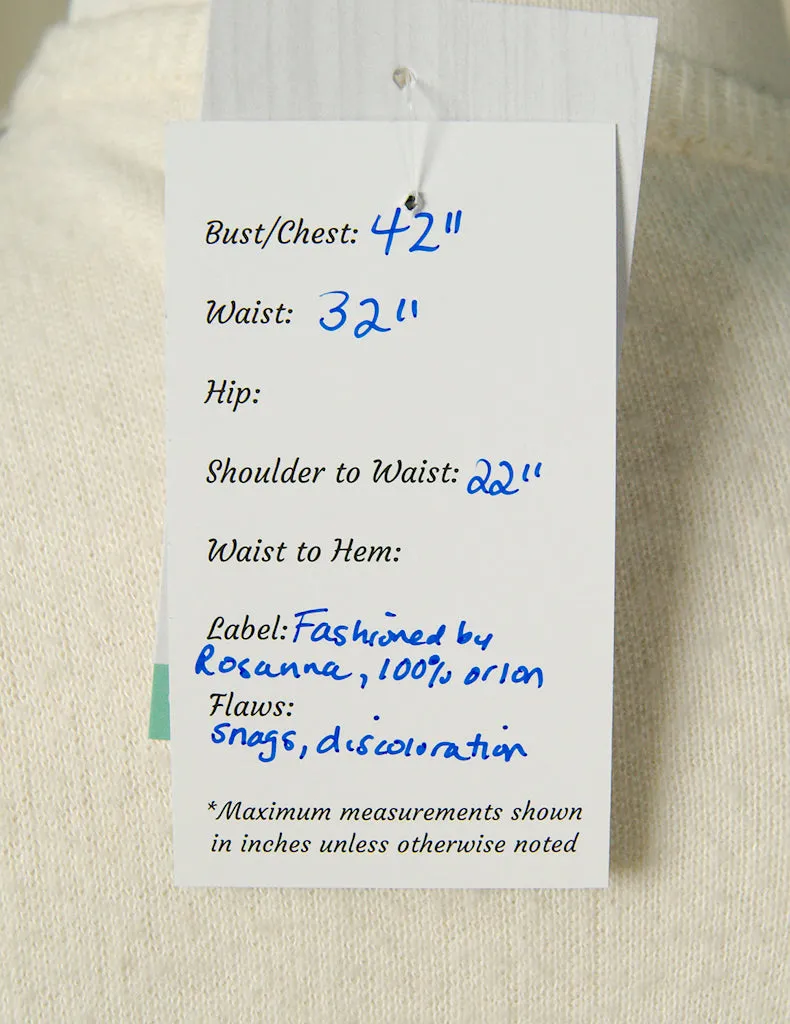 Bust/Chest: 42"
Waist: 32"
Hip:
Shoulder to Waist: 22"
Waist to Hem:
Label: Fashioned by
Rosanna, 100% orlon
Flaws:
snags, discoloration
*Maximum measurements shown
in inches unless otherwise noted